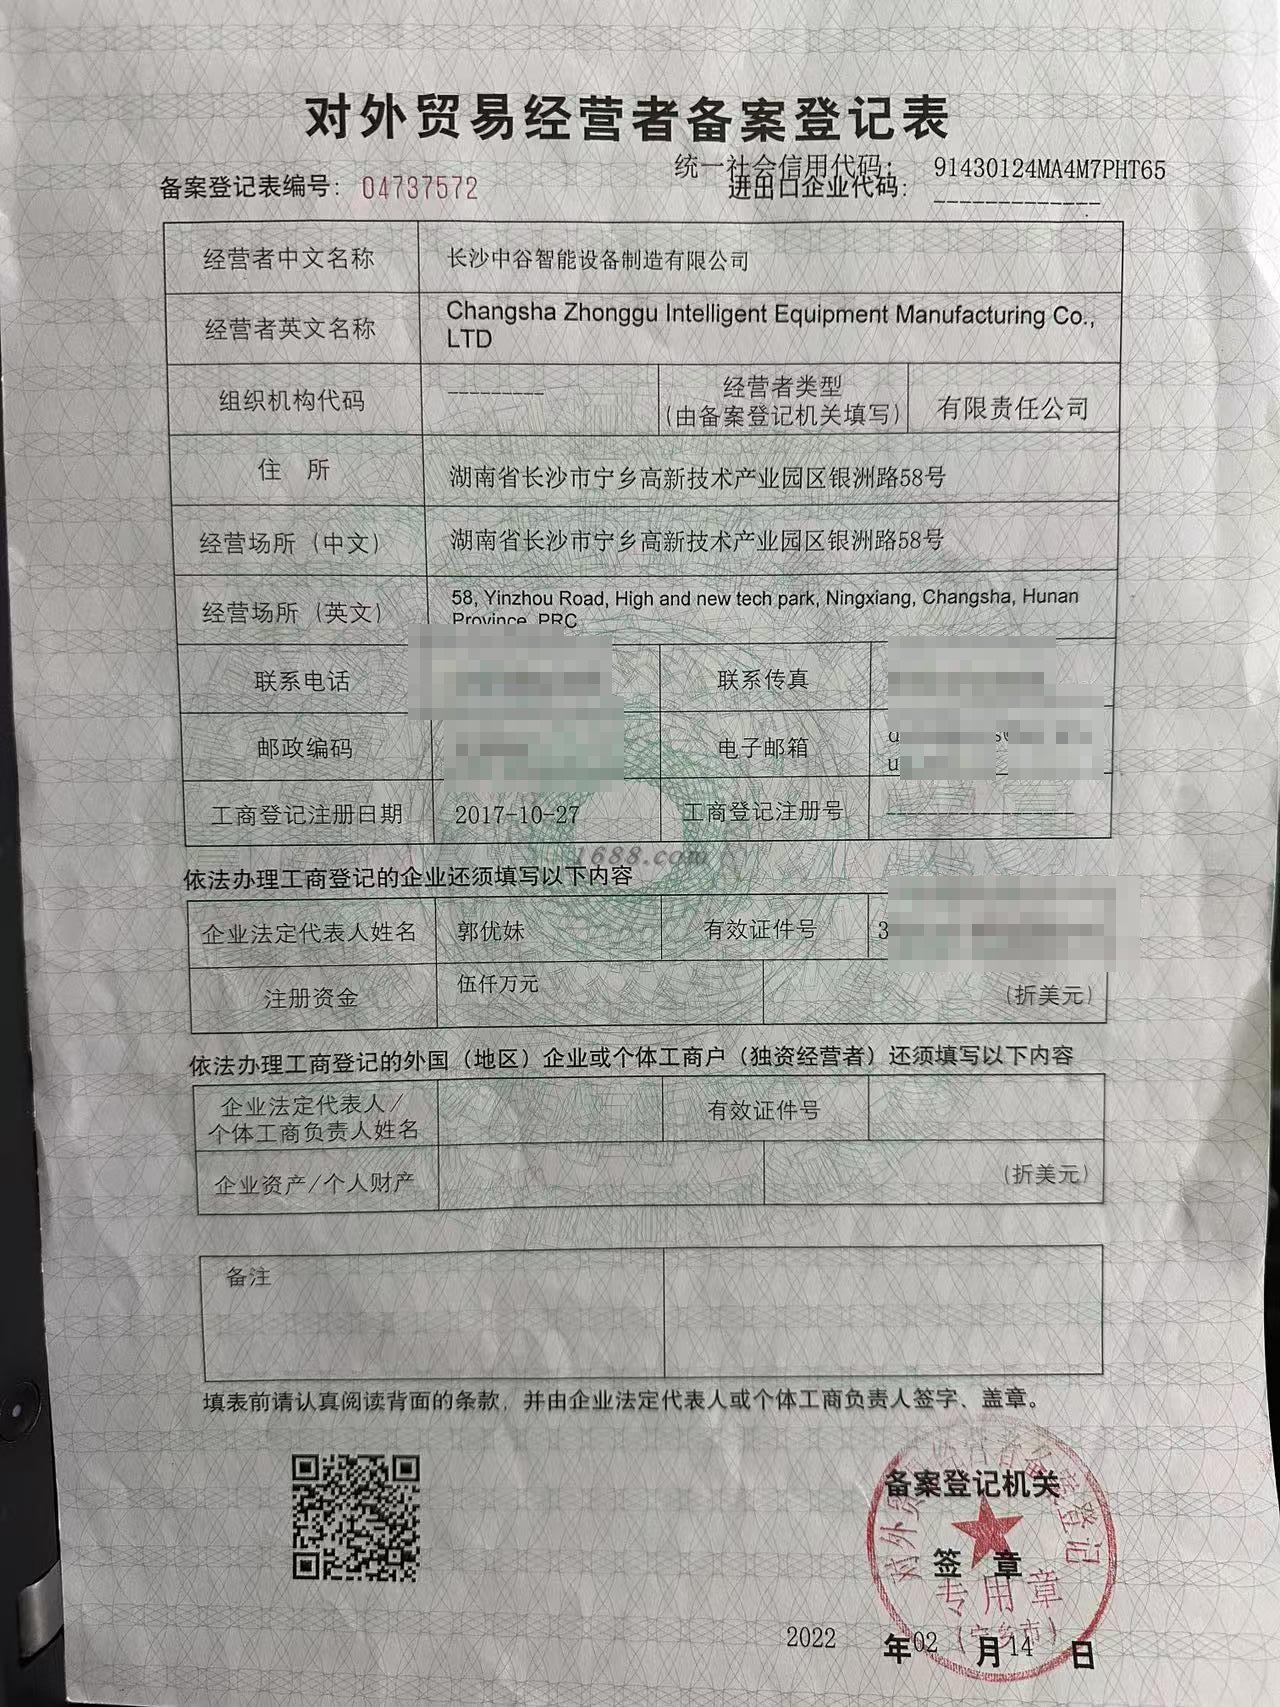 对外贸易经营者备案登记表
统一社会信用代码: 91430124MA4M7PHT65
备案登记表编号: 04737572 进出口企业代码: -------------
经营者中文名称 长沙中谷智能设备制造有限公司
经营者英文名称 Changsha Zhonggu Intelligent Equipment Manufacturing Co.,
LTD
组织机构代码 --------- 经营者类型
(由备案登记机关填写) 有限责任公司
住 所 湖南省长沙市宁乡高新技术产业园区银洲路58号
经营场所（中文） 湖南省长沙市宁乡高新技术产业园区银洲路58号
经营场所（英文） 58, Yinzhou Road, High and new tech park, Ningxiang, Changsha, Hunan
Province, PRC
联系电话 联系传真
邮政编码 电子邮箱
工商登记注册日期 2017-10-27 工商登记注册号 ------------------
1688.com
依法办理工商登记的企业还须填写以下内容
企业法定代表人姓名 郭优妹 有效证件号 3
注册资金 伍仟万元 (折美元)
依法办理工商登记的外国（地区）企业或个体工商户（独资经营者）还须填写以下内容
企业法定代表人/
个体工商负责人姓名 有效证件号
企业资产/个人财产 (折美元)
备注
填表前请认真阅读背面的条款，并由企业法定代表人或个体工商负责人签字、盖章。
对外贸易经营者备案登记
备案登记机关
签 章
专用章
(宁乡市)
2022 年 02 月 14 日